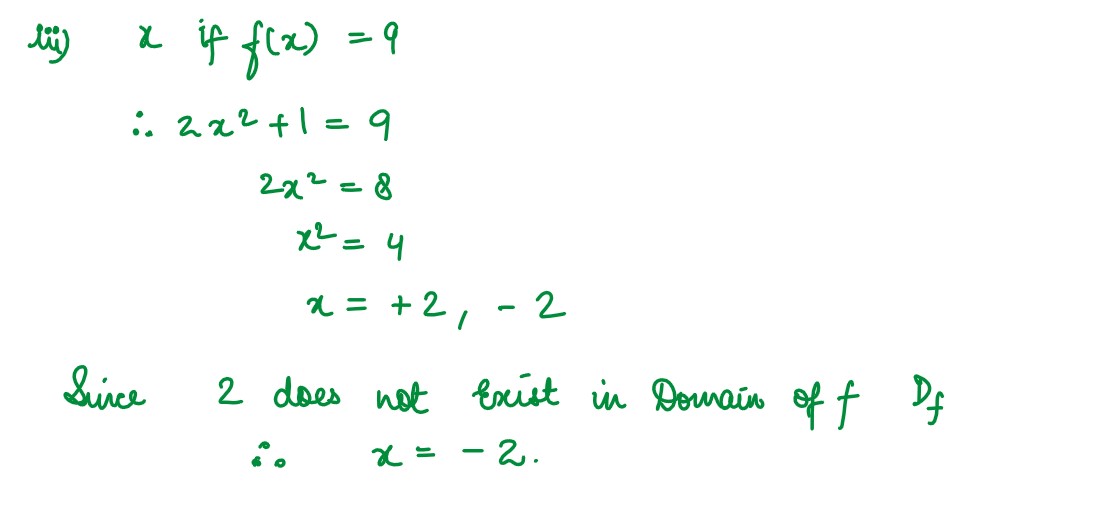 iii) x if f(x) = 9
∴ 2x² + 1 = 9
2x² = 8
x² = 4
x = +2, -2
Since 2 does not Exist in Domain of f D_f
∴ x = -2.